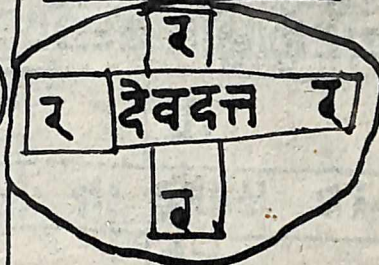 र
र देवदत्त र
र